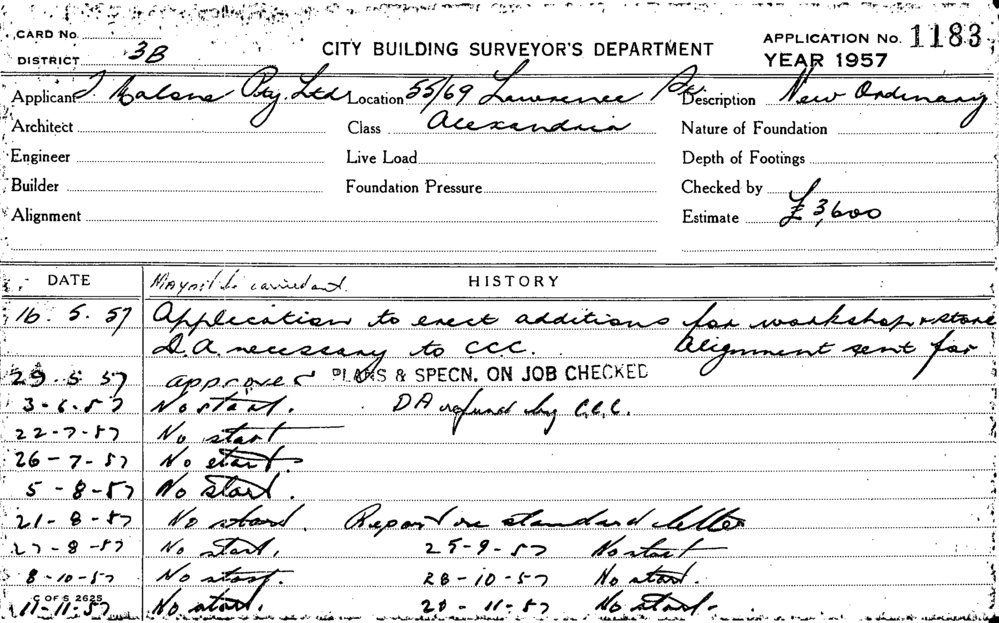 CARD No.
DISTRICT 3B
CITY BUILDING SURVEYOR'S DEPARTMENT
APPLICATION No. 1183
YEAR 1957
Applicant J Malone Pty. Ltd Location 55/69 Lawrence St. Description New Ordinary
Architect Class Alexandria Nature of Foundation
Engineer Live Load Depth of Footings
Builder Foundation Pressure Checked by
Alignment Estimate £3,600
DATE HISTORY
May not be carried out.
16.5.57 Application to erect additions for workshop & store
D.A. necessary to CCC. Alignment sent for
29.5.57 approved PLANS & SPECN. ON JOB CHECKED
3-6-57 No start. DA refund by C.C.C.
22-7-57 No start
26-7-57 No start
5-8-57 No start.
21-8-57 No start. Report on standard letter
27-8-57 No start. 25-9-57 No start
8-10-57 No start. 28-10-57 No start.
C OF S 2625
11-11-57 No start. 20-11-57 No start.